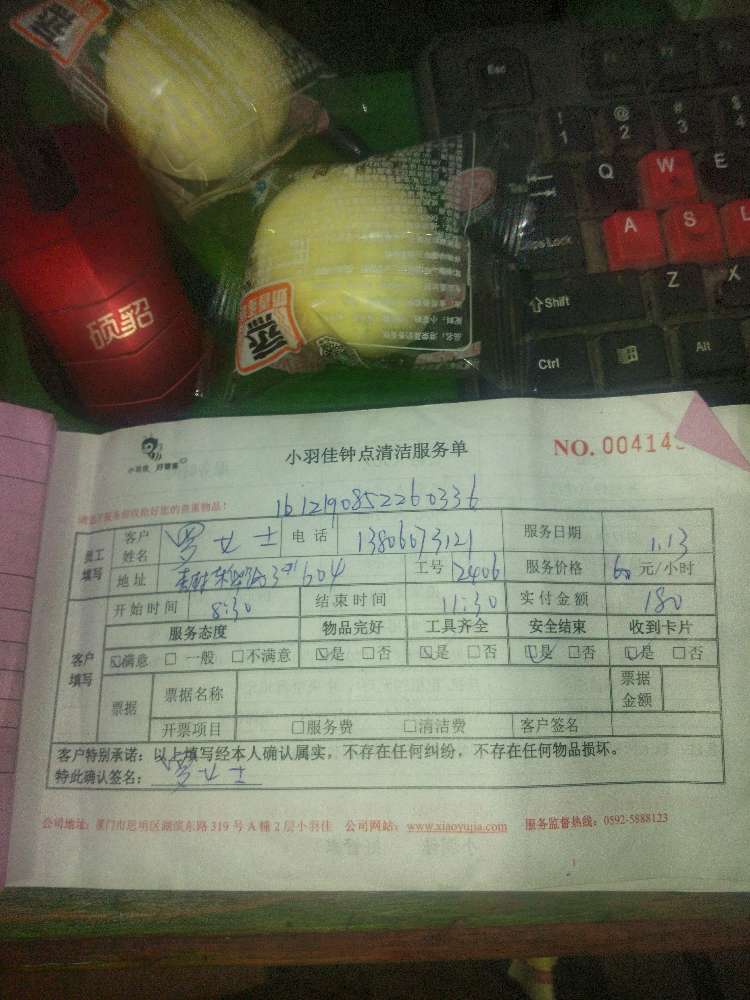 Esc
! 1
@ 2
# 3
$ 4
Q W E
A S
Lock
Z X
Shift
Ctrl
Alt
硕貂
小羽佳 好管家
小羽佳钟点清洁服务单
NO. 00414
1612190852260336
员工填写 客户姓名 罗女士 电话 13806073121 服务日期 1.13
地址 604 工号 2406 服务价格 60 元/小时
开始时间 8:30 结束时间 11:30 实付金额 180
客户填写 服务态度 物品完好 工具齐全 安全结束 收到卡片
☑满意 □一般 □不满意 ☑是 □否 ☑是 □否 ☑是 □否 ☑是 □否
票据 票据名称 票据金额
开票项目 □服务费 □清洁费 客户签名
客户特别承诺：以上填写经本人确认属实，不存在任何纠纷，不存在任何物品损坏。
特此确认签名： 罗女士
公司地址：厦门市思明区湖滨东路 319 号 A 幢 2 层小羽佳 公司网站：www.xiaoyujia.com 服务监督热线：0592-5888123